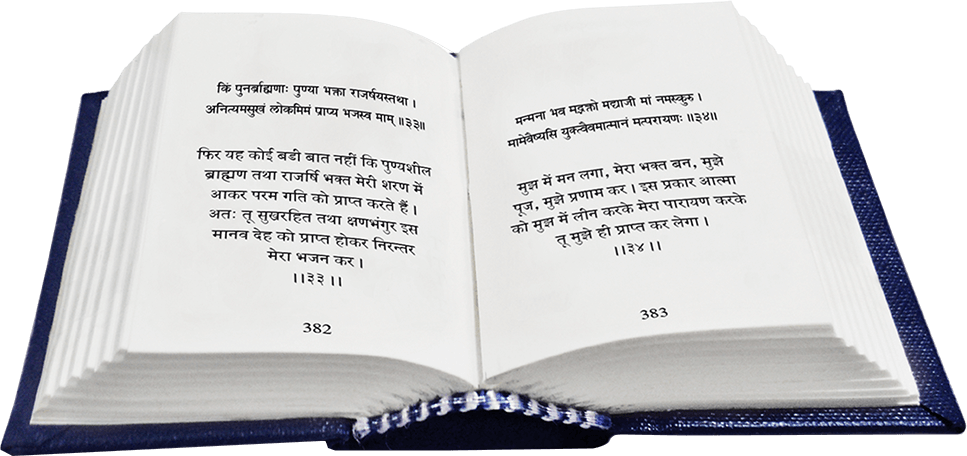 किं पुनर्ब्राह्मणाः पुण्या भक्ता राजर्षयस्तथा ।
अनित्यमसुखं लोकमिमं प्राप्य भजस्व माम् ॥३३॥
फिर यह कोई बडी बात नहीं कि पुण्यशील
ब्राह्मण तथा राजर्षि भक्त मेरी शरण में
आकर परम गति को प्राप्त करते हैं ।
अतः तू सुखरहित तथा क्षणभंगुर इस
मानव देह को प्राप्त होकर निरन्तर
मेरा भजन कर ।
।।३३ ।।
382
मन्मना भव मद्भक्तो मद्याजी मां नमस्कुरु ।
मामेवैष्यसि युक्त्वैवमात्मानं मत्परायणः ॥३४॥
मुझ में मन लगा, मेरा भक्त बन, मुझे
पूज, मुझे प्रणाम कर । इस प्रकार आत्मा
को मुझ में लीन करके मेरा पारायण करके
तू मुझे ही प्राप्त कर लेगा ।
।।३४ ।।
383